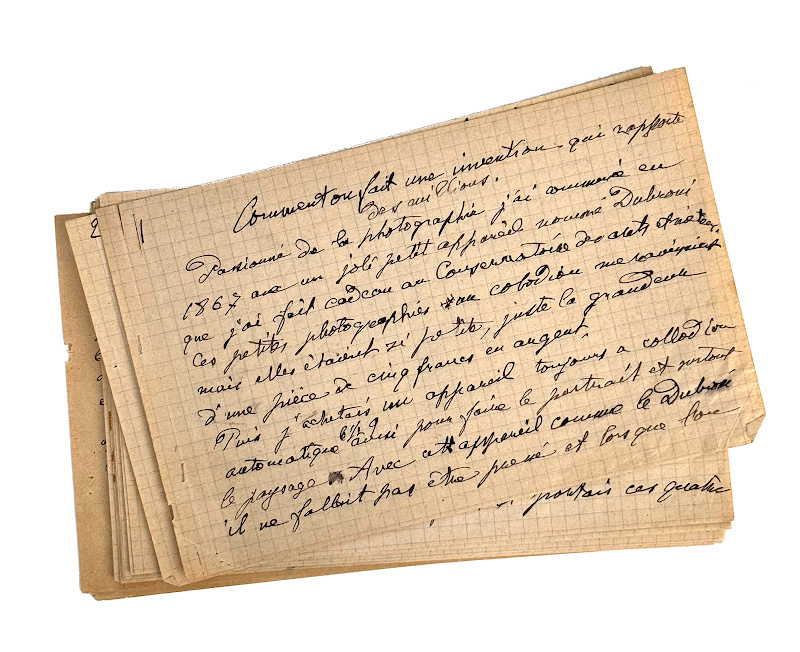 Comment on fait une invention qui rapporte
des millions.
Passionné de la photographie j'ai commencé en
1867 avec un joli petit appareil nommé Dubroni
que j'ai fait cadeau au Conservatoire des arts et métiers.
Ces petites photographies au colodion me ravissaient
mais elles étaient si petites, juste la grandeur
d'une pièce de cinq francs en argent
Puis j'achetais un appareil toujours a collodion
automatique 6½ 9 aussi pour faire le portrait et surtout
le paysage Avec cet appareil comme le Dubroni
il ne fallait pas être pressé et lorsque l'on
portais ces quatre
2